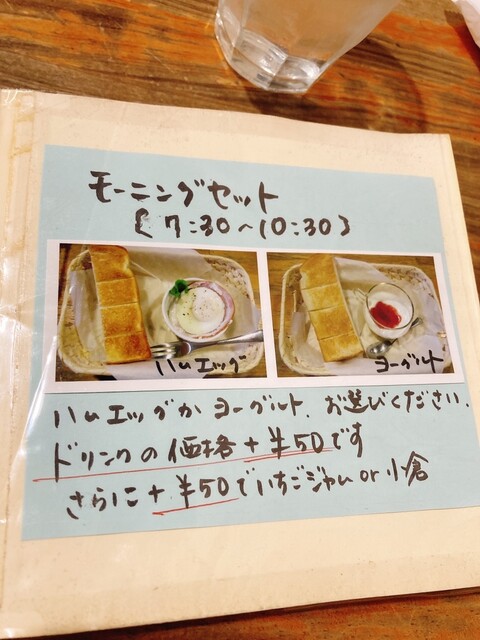 モーニングセット
[7:30〜10:30]
ハムエッグ
ヨーグルト
ハムエッグか ヨーグルト、お選びください.
ドリンクの価格+¥50です
さらに+¥50でいちごジャム or 小倉